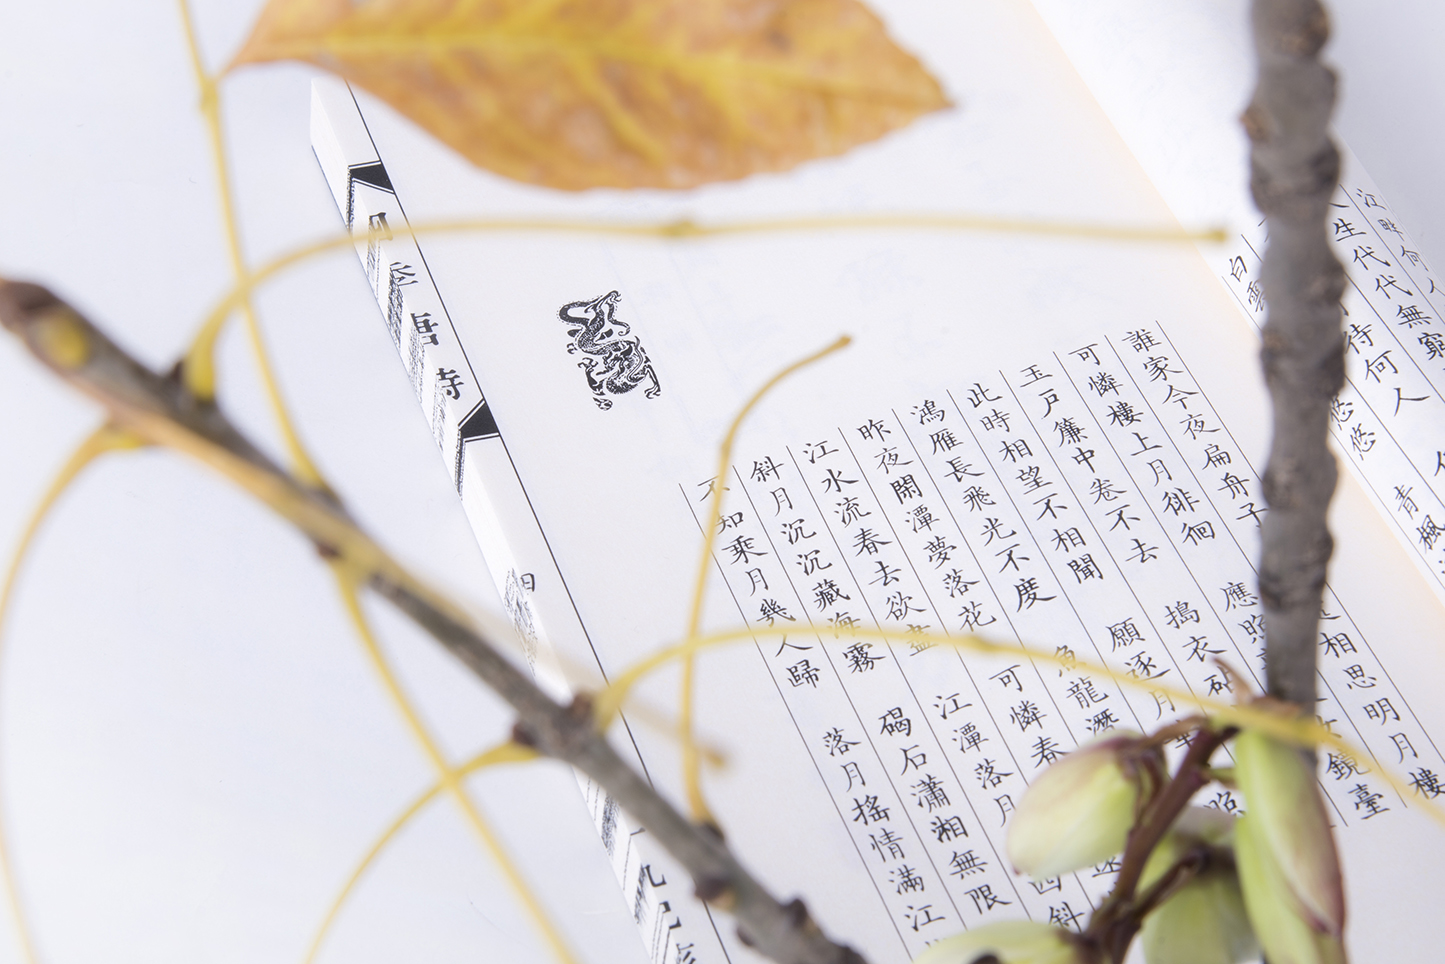 何人
人生代代無窮
待何人
白雲 悠悠 青楓
誰家今夜扁舟子 相思明月樓
可憐樓上月徘徊 應照 鏡臺
玉戶簾中卷不去 搗衣砧
此時相望不相聞 願逐月華 照
鴻雁長飛光不度 魚龍潛
昨夜閒潭夢落花 可憐春
江水流春去欲盡 江潭落月 西斜
斜月沉沉藏海霧 碣石瀟湘無限
不知乘月幾人歸 落月搖情滿江
唐詩